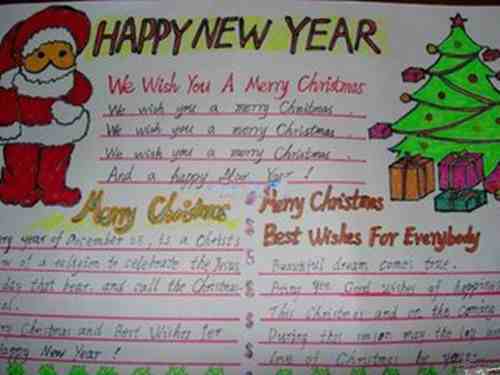 HAPPY NEW YEAR
We Wish You A Merry Christmas
We wish you a merry Christmas .
We wish you a merry Christmas .
We wish you a merry Christmas .
And a happy New Year !
Merry Christmas
year of December 25, is a Christ
of a religion to celebrate the Jesus
day that bear, and call the Christmas
Christmas and Best Wishes for
Happy New Year !
Merry Christmas
Best Wishes For Everybody
Beautiful dream comes true.
Bring you Good wishes of
This Christmas and on the coming
During this season may the joy and
love of Christmas be yours